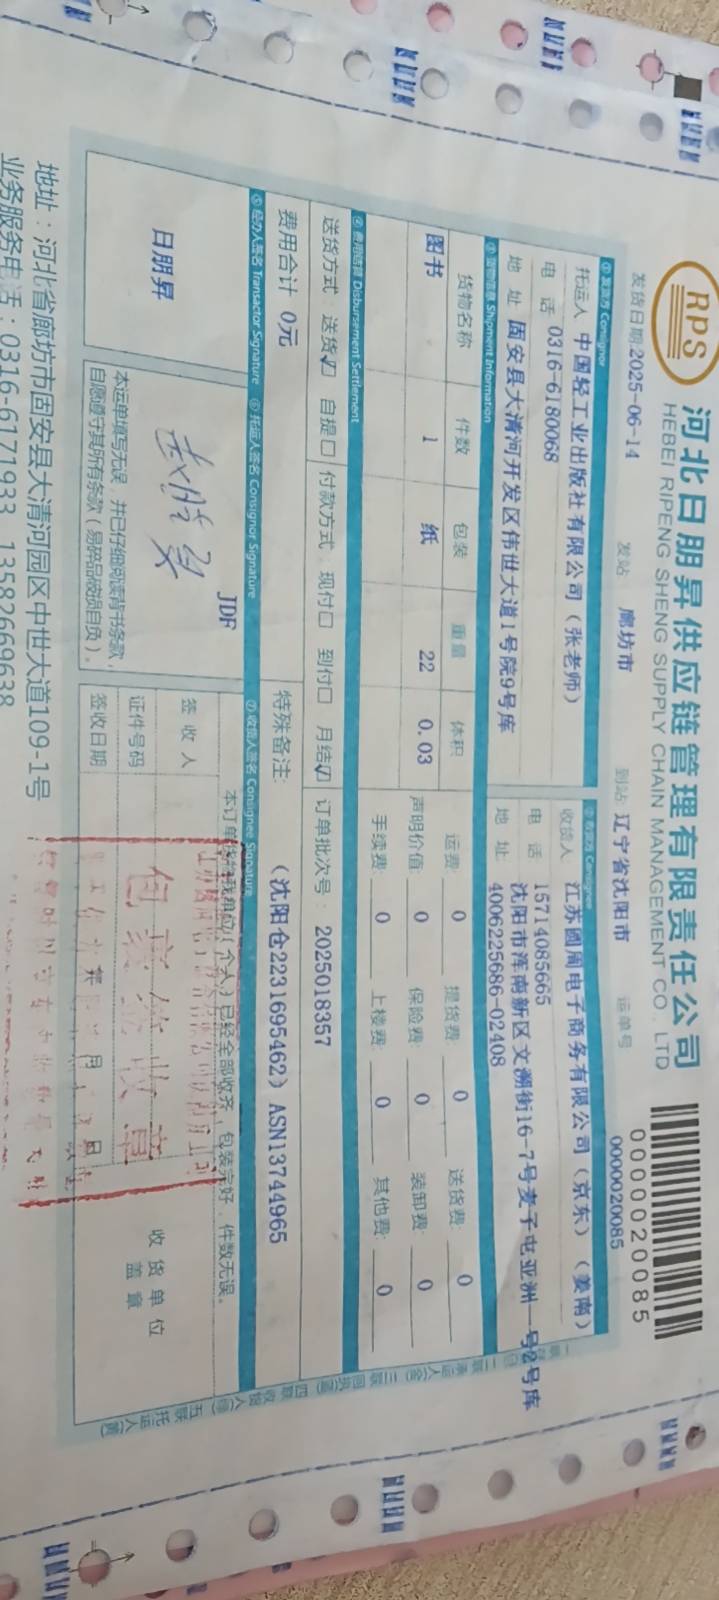 RPS
河北日朋昇供应链管理有限责任公司
HEBEI RIPENG SHENG SUPPLY CHAIN MANAGEMENT CO., LTD
0000020085
发货日期 2025-06-14 发站 廊坊市 到站 辽宁省沈阳市 运单号 0000020085
① 发货方 Consignor
托运人 中国轻工业出版社有限公司（张老师）
电 话 0316-6180068
地 址 固安县大清河开发区伟世大道1号院9号库
收货人 江苏圆周电子商务有限公司（京东）（姜南）
电 话 15714085665
地 址 沈阳市浑南新区文溯街16-7号麦子屯亚洲一号2号库
4006225686-02408
③ 货物信息 Shipment Information
货物名称 件数 包装 重量 体积
图书 1 纸 22 0.03
运费: 0 提货费: 0 送货费: 0
声明价值: 0 保险费: 0 装卸费: 0
手续费: 0 上楼费: 0 其他费: 0
④ 费用结算 Disbursement Settlement
送货方式 送货☑ 自提☐ 付款方式: 现付☐ 到付☐ 月结☑ 订单批次号: 2025018357
费用合计 0元
特殊备注: (沈阳仓2231695462) ASN13744965
⑤ 经办人签名 Transactor Signature ⑥ 托运人签名 Consignor Signature ⑦ 收货人签名 Consignee Signature
日朋昇
JDF
本运单填写无误，并已仔细阅读背书条款，
自愿遵守其所有条款（易碎品破损自负）。
本订单货物我单位（个人）已经全部收齐，包装完好，件数无误。
签收人
证件号码
签收日期 年 月 日
收货单位
盖章
包裹签收章
地址：河北省廊坊市固安县大清河园区中世大道109-1号
业务服务电话：0316-6171933 13582669638